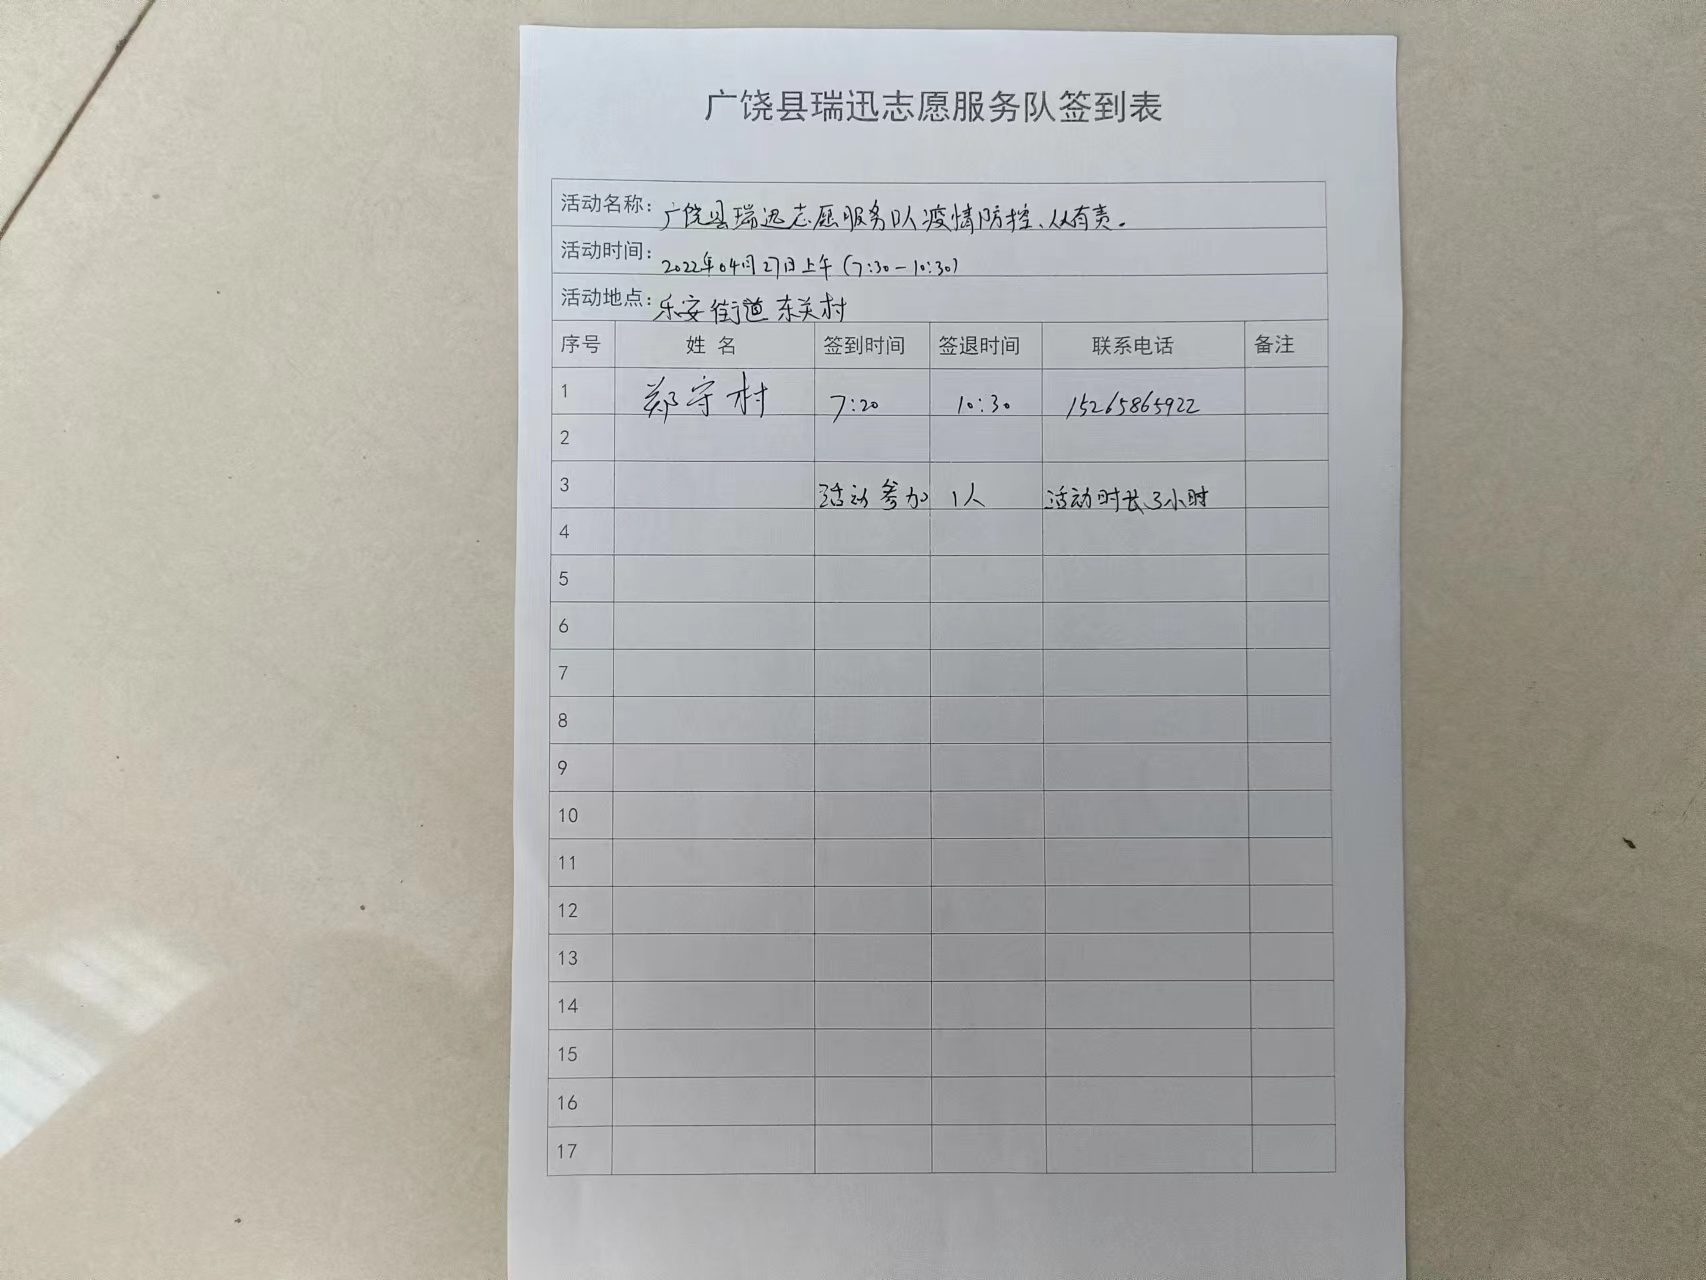 广饶县瑞迅志愿服务队签到表
活动名称：广饶县瑞迅志愿服务队疫情防控、从有责。
活动时间：2022年04月27日上午（7:30-10:30）
活动地点：乐安街道东关村
序号 姓 名 签到时间 签退时间 联系电话 备注
1 郑守村 7:20 10:30 15265865922
2
3 活动参加 1人 活动时长3小时
4
5
6
7
8
9
10
11
12
13
14
15
16
17